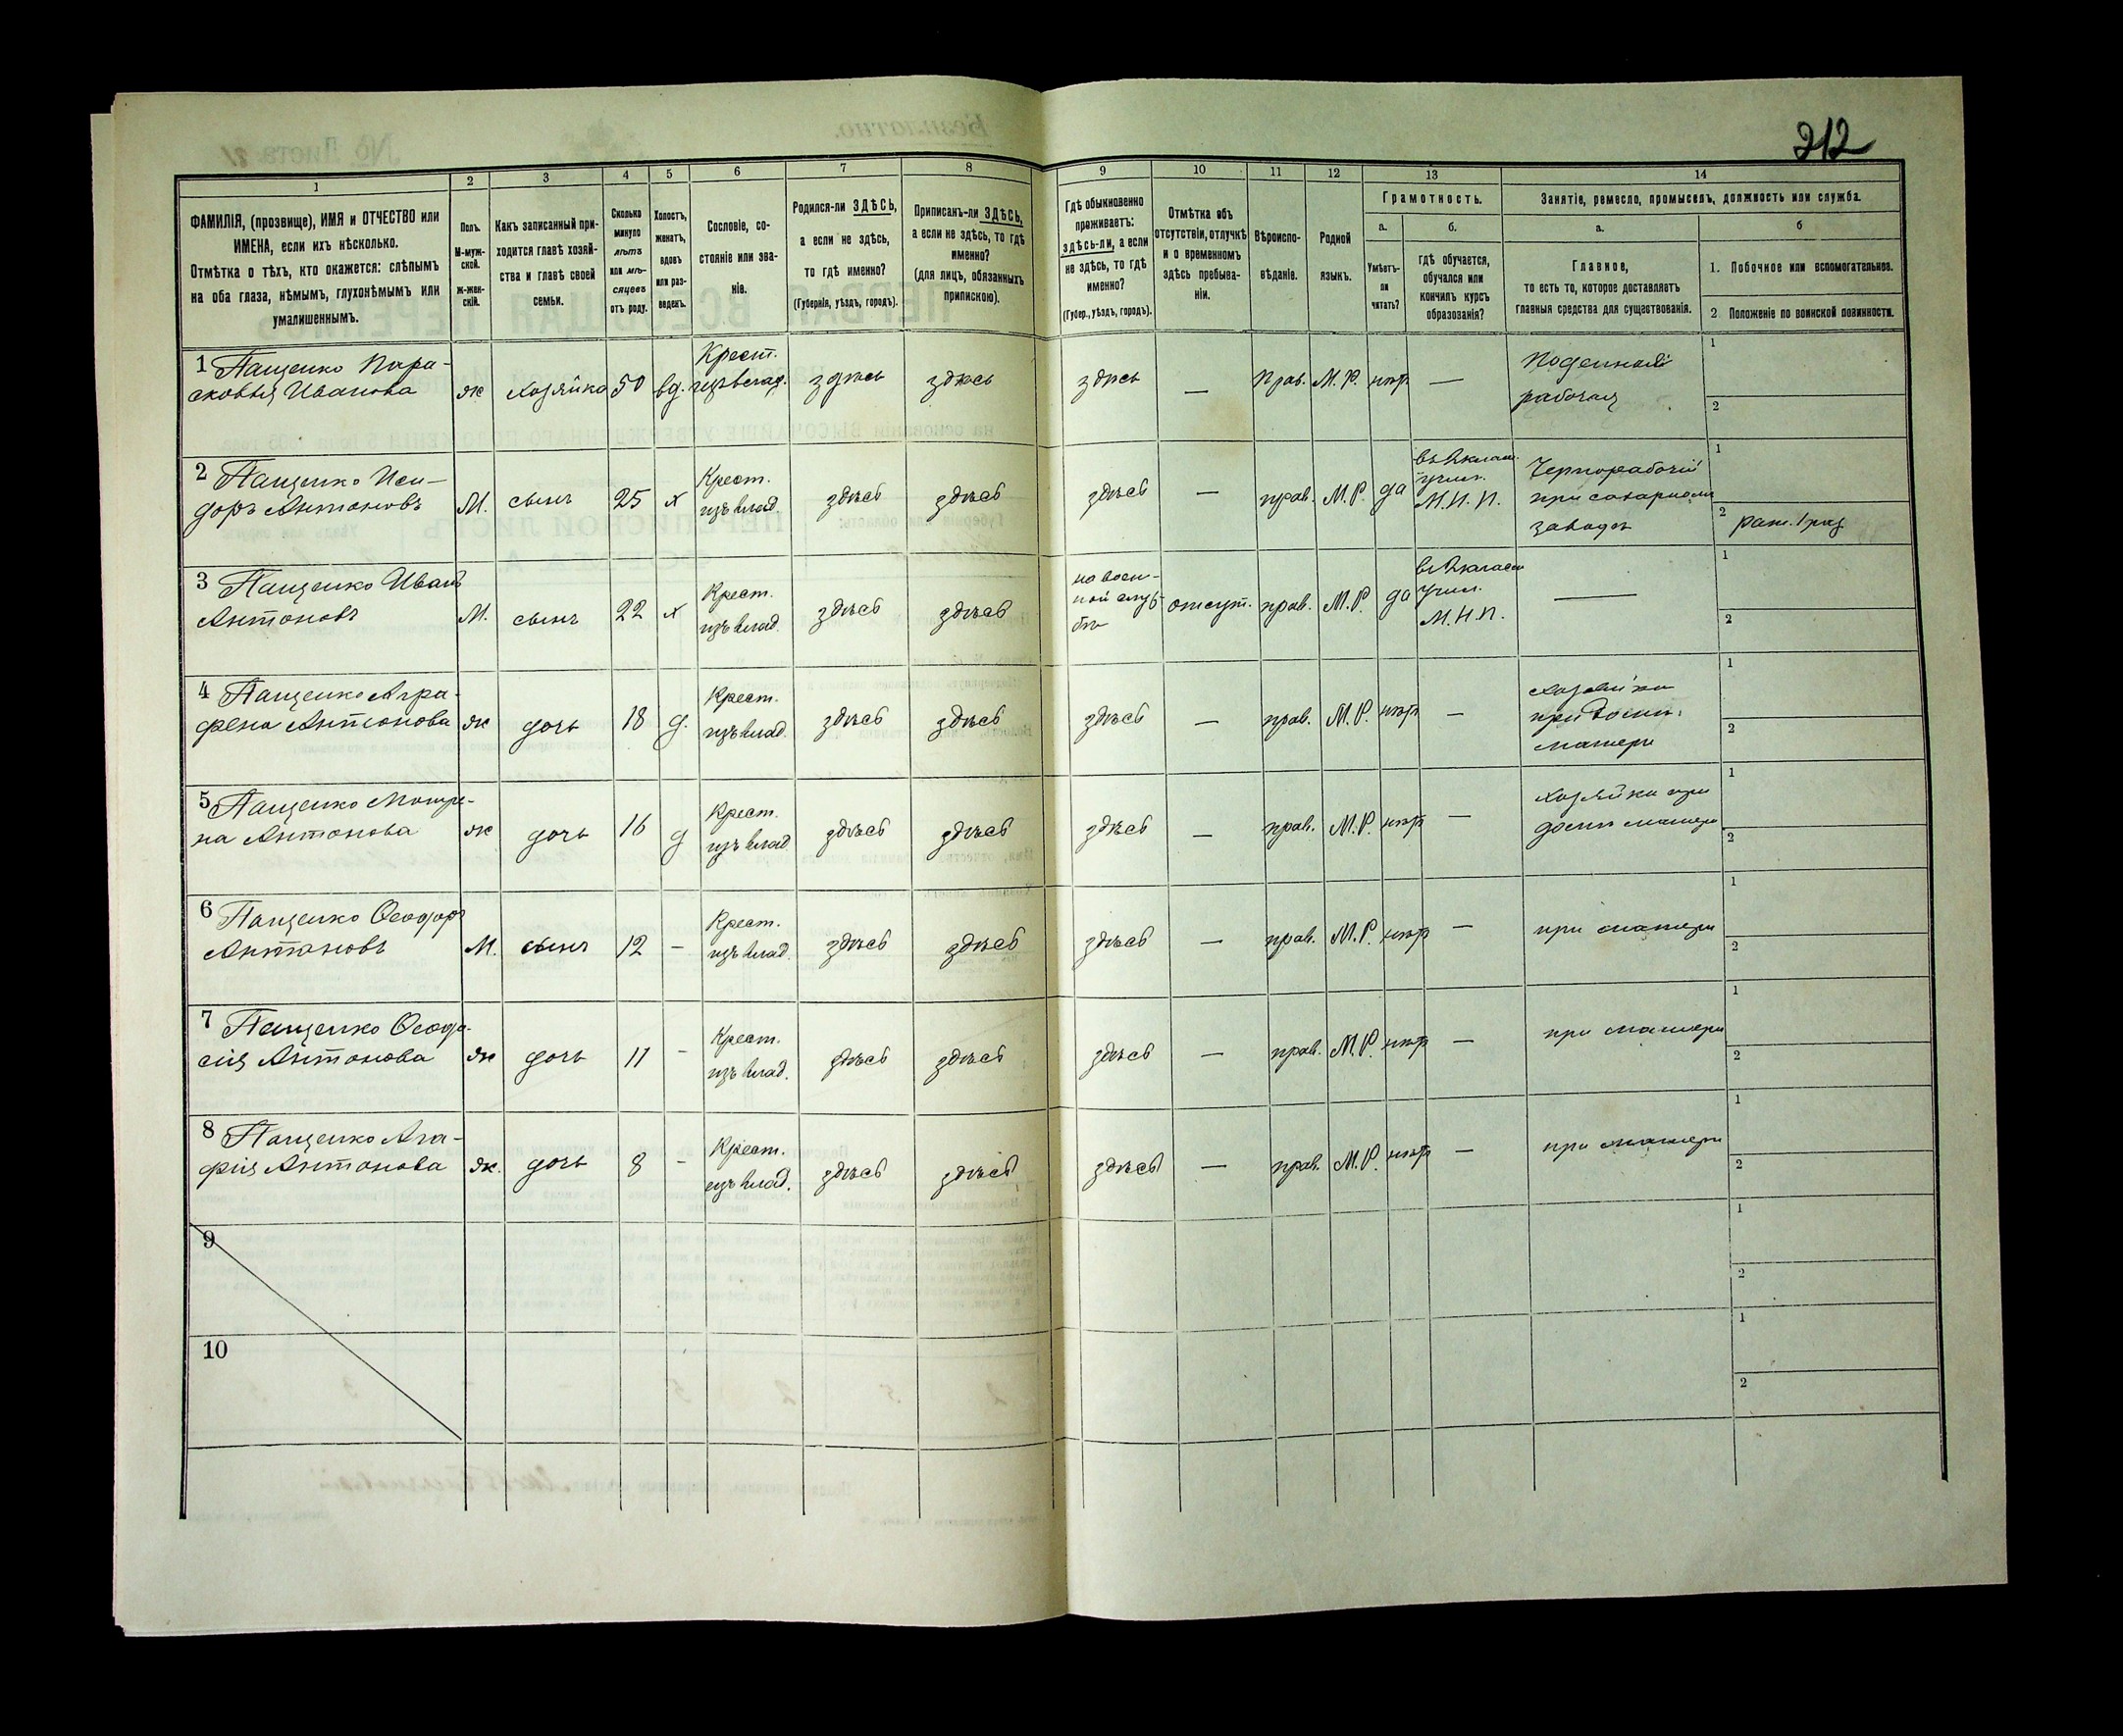 212
1
2
3
4
5
6
7
8
9
10
11
12
13
14
ФАМИЛІЯ, (прозвище), ИМЯ и ОТЧЕСТВО или
ИМЕНА, если ихъ нѣсколько.
Отмѣтка о тѣхъ, кто окажется: слѣпымъ
на оба глаза, нѣмымъ, глухонѣмымъ или
умалишеннымъ.
Полъ.
М-муж-
ской.
Ж-жен-
скій.
Какъ записанный при-
ходится главѣ хозяй-
ства и главѣ своей
семьи.
Сколько
минуло
лѣтъ
или мѣ-
сяцевъ
отъ роду.
Холостъ,
женатъ,
вдовъ
или раз-
веденъ.
Сословіе, со-
стояніе или зва-
ніе.
Родился-ли ЗДѢСЬ,
а если не здѣсь,
то гдѣ именно?
(Губернія, уѣздъ, городъ).
Приписанъ-ли ЗДѢСЬ,
а если не здѣсь, то гдѣ
именно?
(для лицъ, обязанныхъ
припискою).
Гдѣ обыкновенно
проживаетъ:
здѣсь-ли, а если
не здѣсь, то гдѣ
именно?
(Губер., уѣздъ, городъ).
Отмѣтка объ
отсутствіи, отлучкѣ
и о временномъ
здѣсь пребыва-
ніи.
Вѣроиспо-
вѣданіе.
Родной
языкъ.
Грамотность.
а.
б.
Умѣетъ-
ли
читать?
гдѣ обучается,
обучался или
кончилъ курсъ
образованія?
Занятіе, ремесло, промыселъ, должность или служба.
а.
б
Главное,
то есть то, которое доставляетъ
главныя средства для существованія.
1. Побочное или вспомогательное.
2. Положеніе по воинской повинности.
1 Пащенко Пара-
сковья Иванова
ж
хозяйка
50
вд.
Крест.
изъ влад.
здѣсь
здѣсь
здѣсь
—
Прав.
М. Р.
нѣтъ
—
Поденная
рабочая
1
2
2 Пащенко Иси-
доръ Антоновъ
М.
сынъ
25
х
Крест.
изъ влад.
здѣсь
здѣсь
здѣсь
—
прав.
М. Р.
да
въ 2 клас.
учил.
М. Н. П.
Чернорабочій
при сахарномъ
заводѣ
1
2
рат. 1 раз.
3 Пащенко Иванъ
Антоновъ
М.
сынъ
22
х
Крест.
изъ влад.
здѣсь
здѣсь
на воен-
ной служ-
бѣ
отсут.
прав.
М. Р.
да
въ 2 класн.
учил.
М. Н. П.
—
1
2
4 Пащенко Агра-
фена Антонова
ж
дочь
18
д.
Крест.
изъ влад.
здѣсь
здѣсь
здѣсь
—
прав.
М. Р.
нѣтъ
—
хозяйка
при
матери
1
2
5 Пащенко Мотре-
на Антонова
ж
дочь
16
д
Крест.
изъ влад
здѣсь
здѣсь
здѣсь
—
прав.
М. Р.
нѣтъ
—
хозяйка при
матери
1
2
6 Пащенко Ѳеодоръ
Антоновъ
М.
сынъ
12
-
Крест.
изъ влад.
здѣсь
здѣсь
здѣсь
—
прав.
М. Р.
нѣтъ
—
при матери
1
2
7 Пащенко Ѳеодо-
сія Антонова
ж
дочь
11
-
Крест.
изъ влад.
здѣсь
здѣсь
здѣсь
—
прав.
М. Р.
нѣтъ
—
при матери
1
2
8 Пащенко Ага-
фія Антонова
ж.
дочь
8
-
Крест.
изъ влад.
здѣсь
здѣсь
здѣсь
—
прав.
М. Р.
нѣтъ
—
при матери
1
2
9
1
2
10
1
2